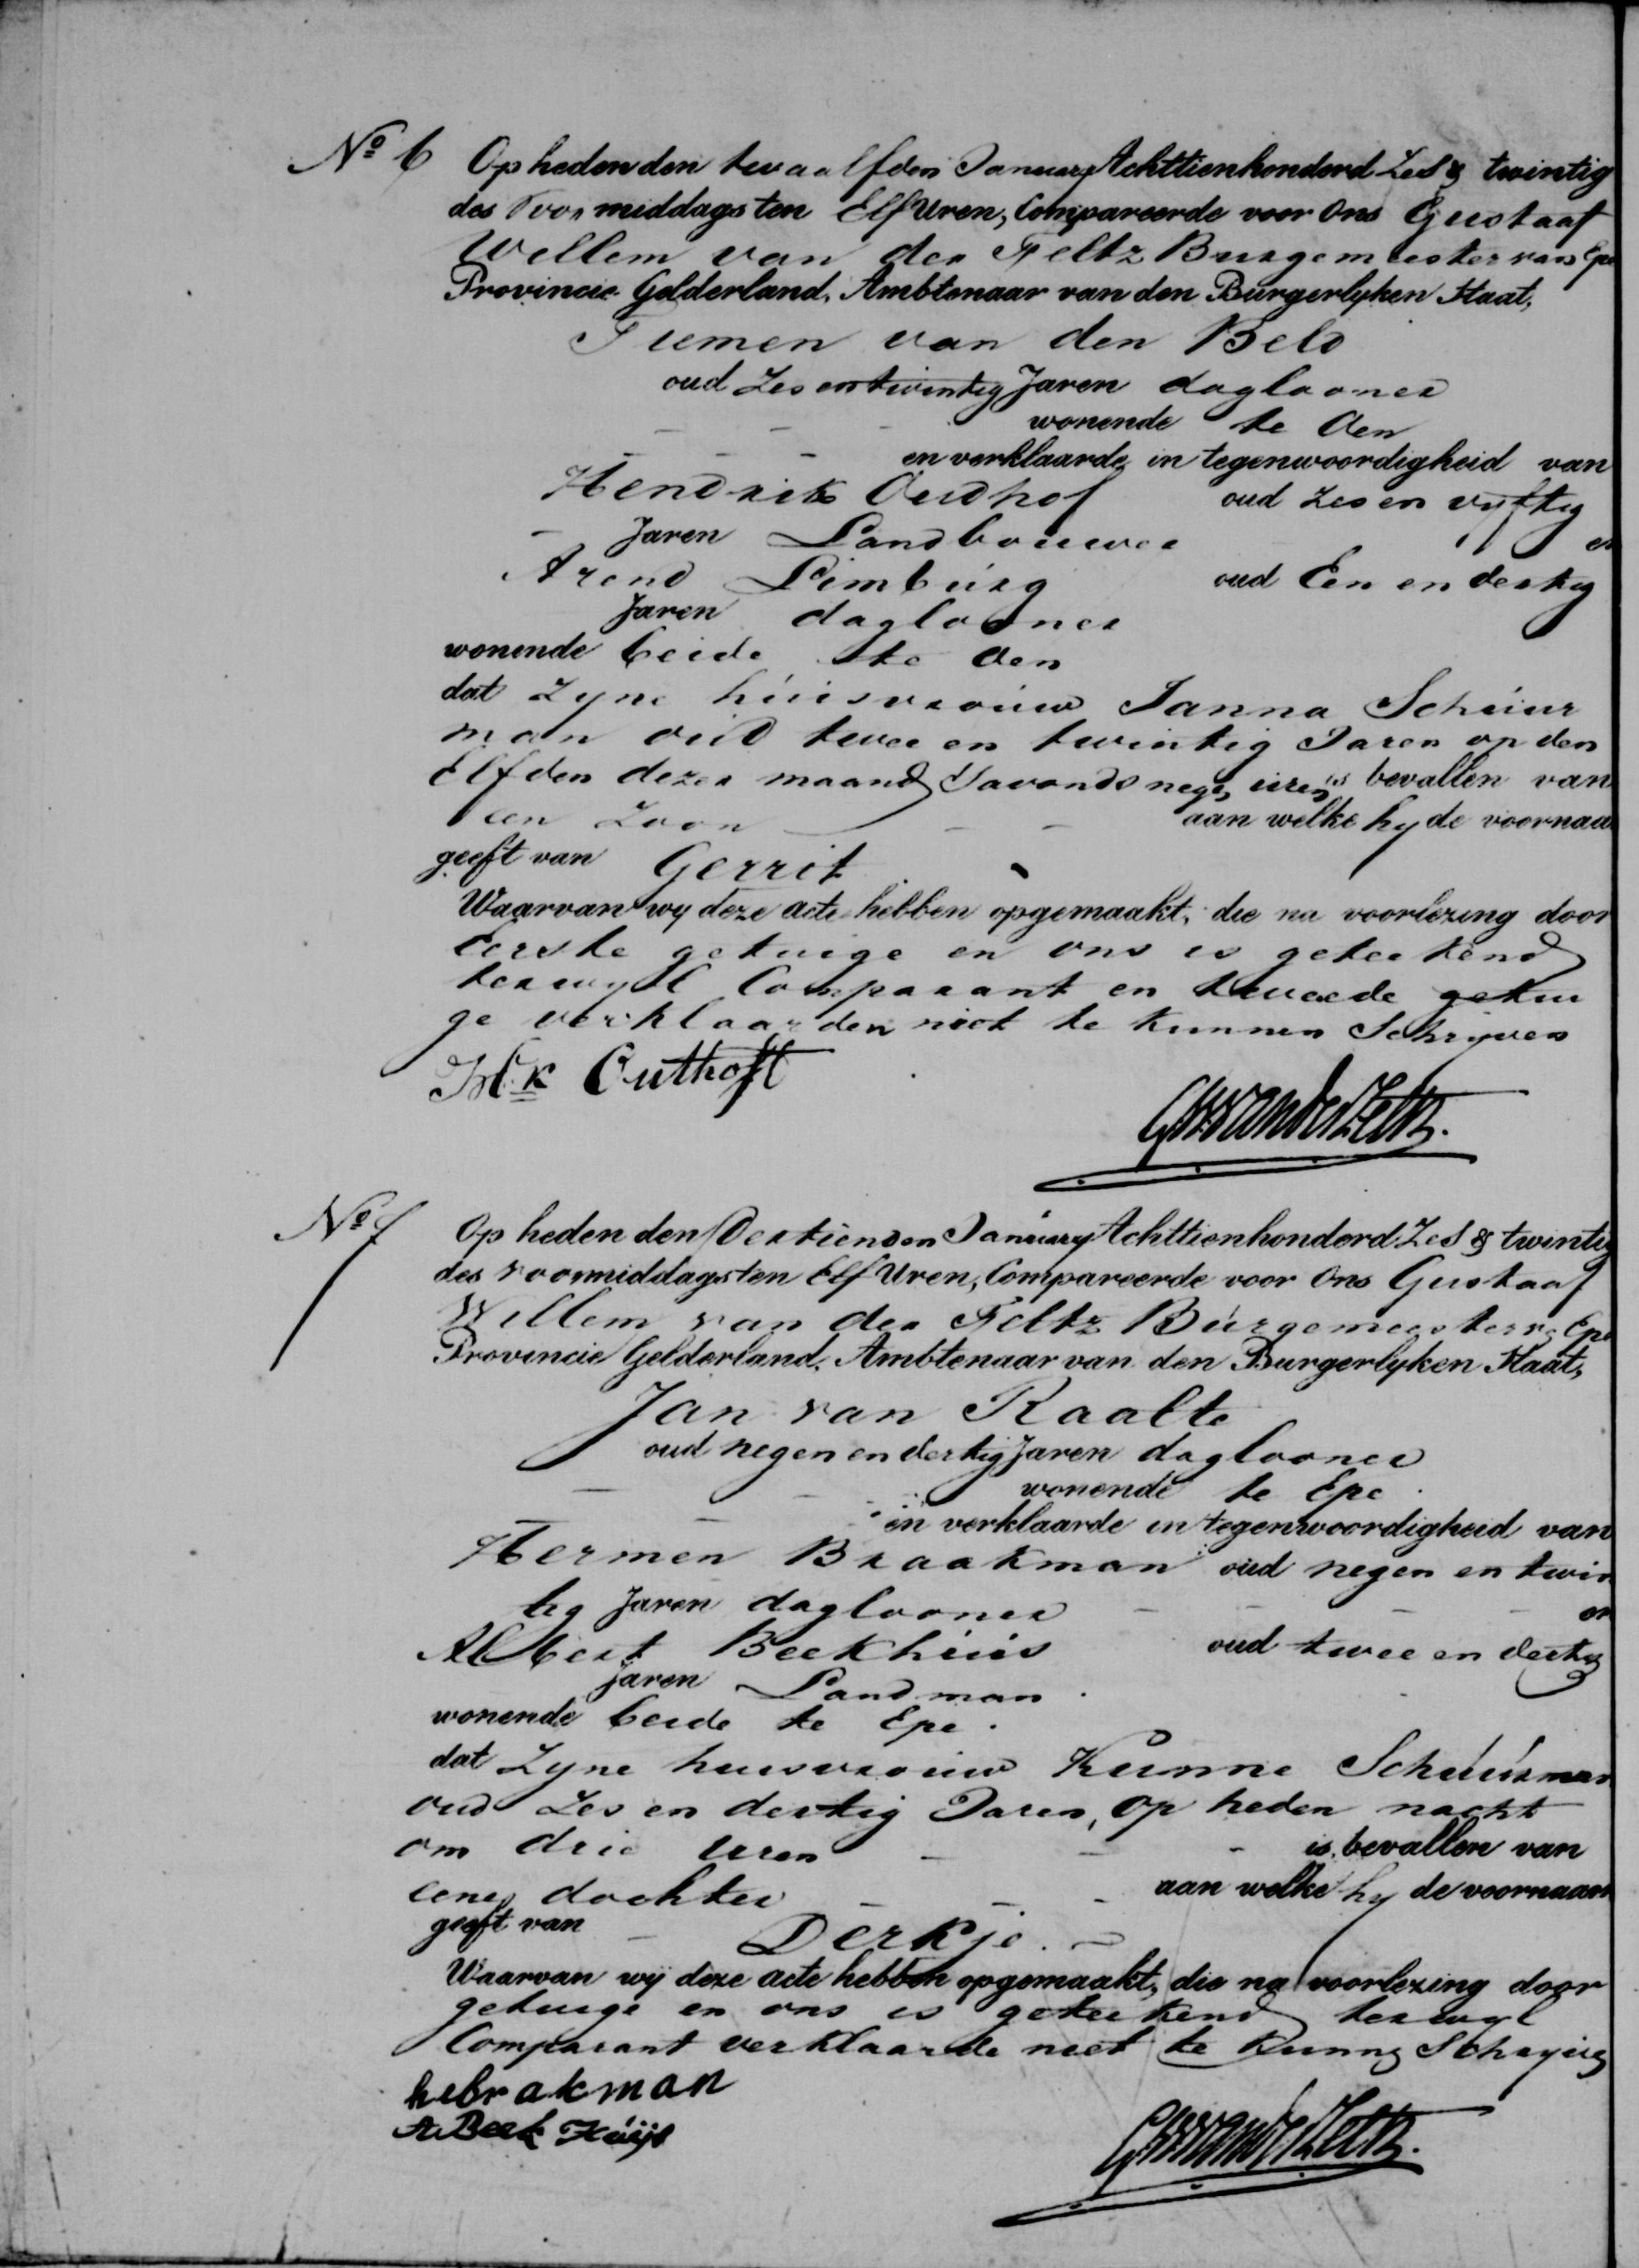 No 6 Op heden den twaalfden January Achttienhonderd Zes & twintig
des Voormiddags ten Elf Uren, Compareerde voor Ons Gustaaf
Willem van der Feltz Burgemeester van Epe
Provincie Gelderland, Ambtenaar van den Burgerlyken Staat,
Tiemen van den Beld
oud Zes en twintig Jaren daglooner
wonende te Oen
en verklaarde in tegenwoordigheid van
Hendrik Oudhof oud Zes en vyftig
Jaren Landbouwer en
Arend Limburg oud Een en dertig
Jaren daglooner
wonende beide te Oen
dat Zyne huisvrouw Janna Schuur
man oud twee en twintig Jaren op den
Elfden dezer maand Savonds negen uren is bevallen van
een Zoon aan welke hy de voornaa
geeft van Gerrit
Waarvan wy deze acte hebben opgemaakt, die na voorlezing door
Eerste getuige en ons is geteekend
terwyl Comparant en tweede getui
ge verklaarden niet te kunnen Schrijven
Hk Outhoft
GWvanderFeltz.
No 7 Op heden den Dertienden January Achttienhonderd Zes & twintig
des voormiddags ten Elf Uren, Compareerde voor Ons Gustaaf
Willem van der Feltz Burgemeester v Epe
Provincie Gelderland, Ambtenaar van den Burgerlyken Staat,
Jan van Raalte
oud negen en dertig Jaren daglooner
wonende te Epe
en verklaarde in tegenwoordigheid van
Hermen Braakman oud negen en twin
tig Jaren daglooner en
Albert Beekhuis oud twee en dertig
Jaren Landman
wonende beide te Epe.
dat Zyne huisvrouw Kunne Schuurman
oud Zes en dertig Jaren, op heden nacht
om drie uren is bevallen van
eene dochter aan welke hy de voornaam
geeft van Derkje.
Waarvan wij deze acte hebben opgemaakt, die na voorlezing door
getuige en ons is geteekend terwyl
Comparant verklaarde niet te kunnen Schryven
hebrakman
A Beek Huijs
GWvanderFeltz.